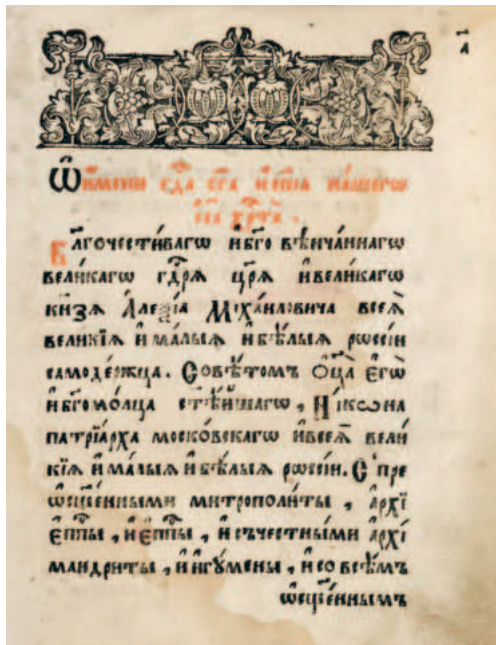 а҃
Ѡ҆ имени гдⷭ҇а бг҃а и҆ сп҃са нашегѡ
і҆и҃са хрⷭ҇та̀ .
Бл҃гочести́вагѡ и҆ бг҃о вѣнча́ннагѡ
великагѡ гдⷭ҇рѧ цр҃ѧ и҆ вели́кагѡ
кн҃зѧ А҆леѯі́а Мⷯиха́иловича всеѧ̀
великїѧ и҆ ма́лыѧ и҆ бѣ́лыѧ рѡссі́и
самоде́ржца . Совѣ́томъ ѻ҆ц҃а̀ є҆гѡ̀
и҆ бг҃омо́лца ст҃ѣ́йшагѡ , Ни́кѡна
патрїа́рха моско́вскагѡ и҆ всеѧ̀ вели
кїѧ и҆ ма́лыѧ и҆ бѣ́лыѧ рѡссі́и . С̾ пре
ѡ҆сщ҃е́нными митрополи́ты , а҆рхї
є҆п҃пы , и҆ є҆п҃пы , и҆ съ честны́ми а҆рхї
мандри́ты , и҆ и҆гꙋ́мены , и҆ со всѣ́мъ
ѡ҆сщ҃е́ннымъ